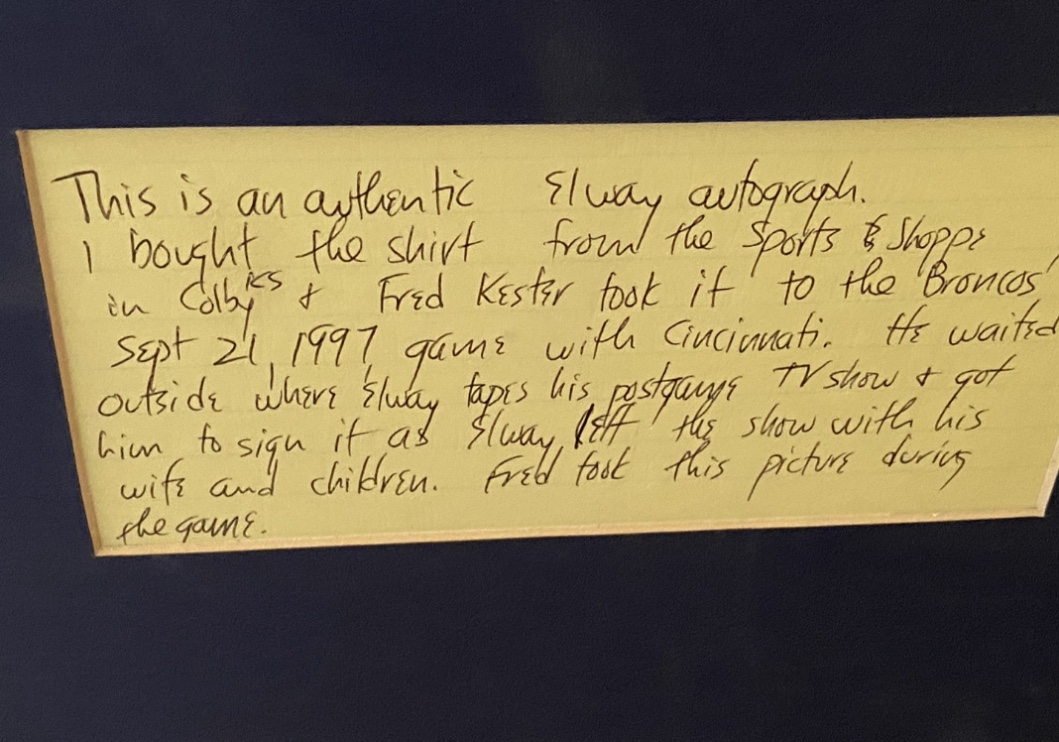 This is an authentic Elway autograph.
I bought the shirt from the Sports & Shoppe
in Colby KS & Fred Kester took it to the Broncos'
Sept 21, 1997 game with Cincinnati. He waited
outside where Elway tapes his postgame TV show & got
him to sign it as Elway left the show with his
wife and children. Fred took this picture during
the game.